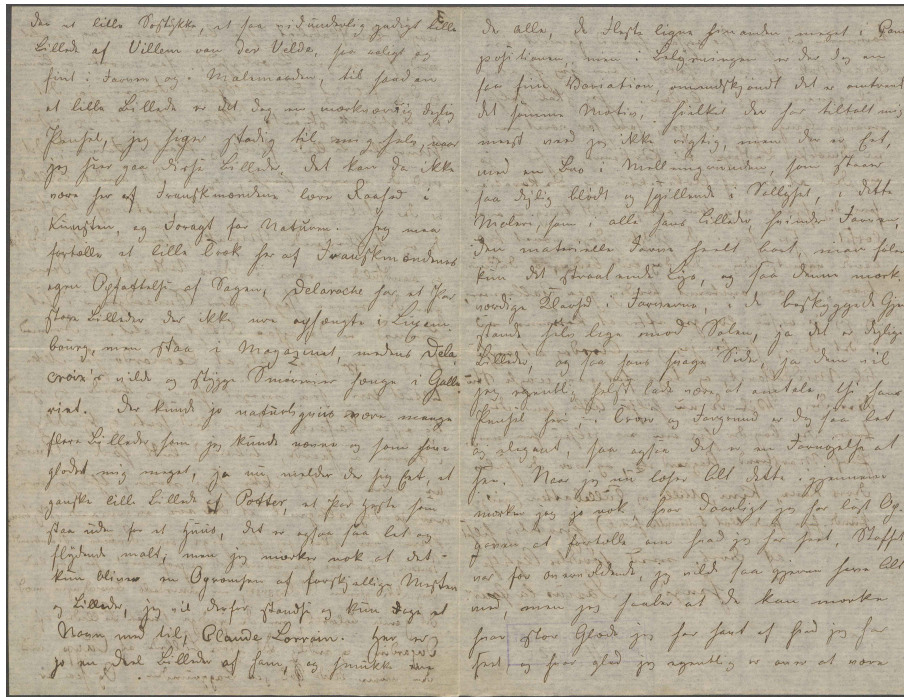 der et lille Søstykke, et saa vidunderlig yndigt lille
Billede af Villem van der Velde, saa ærligt og
fint i Farven og i Malemaaden, til saadan
et lille Billede er det dog en mærkværdig dygtig
Pensel, jeg siger stadig til mig selv, naar
jeg seer paa disse Billeder, det kan da ikke
være her af Franskmændene lære Raahed i
Kunsten, og Foragt for Naturen. Jeg maa
fortælle et lille Træk her af Franskmændenes
egen Opfattelse af Sagen, Delaroche har et Par
store Billeder der ikke ere ophængte i Luxem-
bourg, men staa i Magazinet, medens Dela
croix's vilde og stygge Smørerier hænge i Galle
riet. Der kunde jo naturligviis være mange
flere Billeder, som jeg kunde nævne og som have
glædet mig meget, ja nu melder der sig Eet, et
ganske lille Billede af Potter, et Par Heste som
staa uden for et Huus, det er ogsaa saa let og
flydende malt, men jeg mærker nok at det
kun bliver en Opremsen af forskjellige Mestere
og Billeder, jeg vil derfor standse og kun tage et
Navn med til, Claude Lorrain. Her er
jo en Deel Billeder af ham, og smukke ere
de alle, de fleste ligne hinanden meget i Com
positionen, men i Belysningen er der dog en
saa fiin Variation, omendskjøndt det er omtrent
det samme Motiv, hvilket der har tiltalt mig
meest veed jeg ikke rigtig, men der er Eet,
med en Bro i Mellemgrunden, som staaer
saa dejlig blødt og spillende i Sollyset, i dette
Maleri, som i alle hans Billeder, svinder Farven,
den materielle Farve heelt bort, man føler
kun det straalende Lys, og saa denne mærk
værdige Klarhed i Farverne, i de beskyggede Gjen
stande selv lige imod Solen, ja det er dejlige
Billeder, og saa hans svage Side, ja den vil
jeg egentl. helst lade være at omtale, thi hans
Pensel her, i Træer og Forgrund er dog saa let
og elegant, saa ogsaa det er en Fornøjelse at
see. Naar jeg nu læser Alt dette igjennem
mærker jeg jo nok, hvor daarligt jeg har løst Op-
gaven at fortælle om hvad jeg har seet, Stoffet
var for overvældende, jeg vilde saa gjerne have Alt
med, men jeg haaber at De kan mærke
hvor stor Glæde jeg har havt af hvad jeg har
seet og hvor glad jeg egentlig er over at være